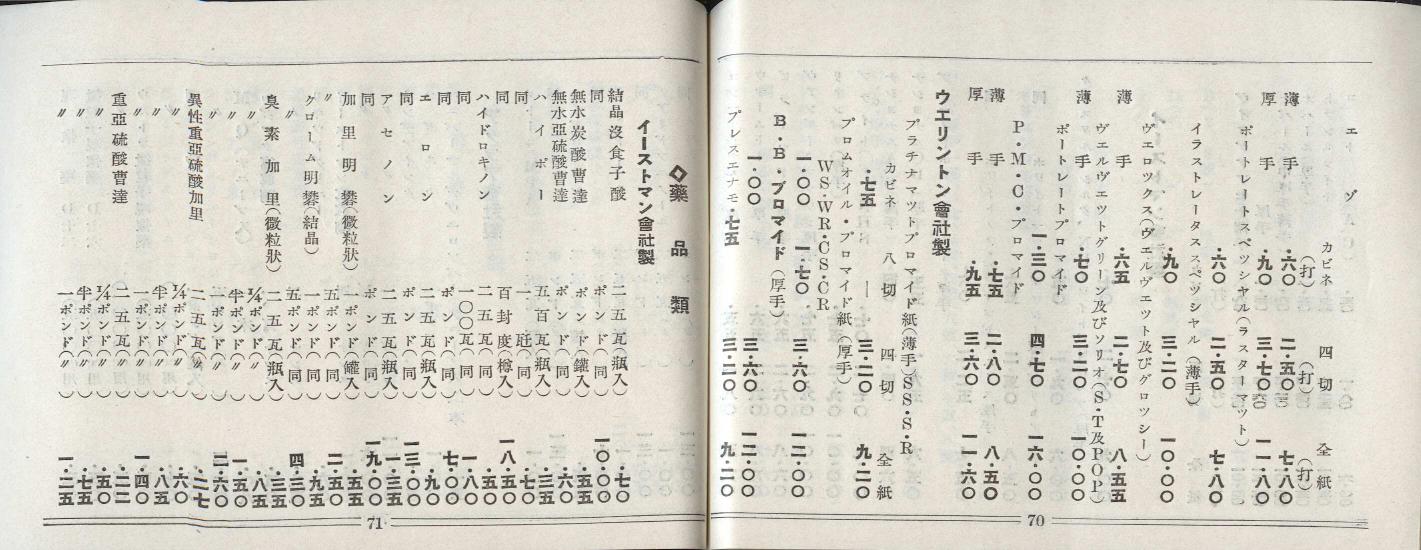 エヅ
カビネ 四切 全紙
(打) (打) (打)
薄手 ・六〇 二・五〇 七・八〇
厚手 ・九〇 三・七〇 一一・八〇
ポートレートスペツシヤル(ラスターマツト)
・六〇 二・五〇 七・八〇
イラストレータススペヅシヤル(薄手)
・九〇 三・二〇 一〇・〇〇
ヴエロツクス(ヴエルヴエツト及びグロツシー)
薄手 ・六五 二・七〇 八・五五
ヴエルヴエツトグリーン及びソリオ(S・T及POP)
薄手 ・九〇 三・二〇 一〇・〇〇
ポートレートプロマイド
一・三〇 四・七〇 一六・〇〇
P・M・C・プロマイド
薄手 ・七五 二・八〇 八・五〇
厚手 ・九五 三・六〇 一一・六〇
ウエリントン會社製
プラチナマツトプロマイド紙(薄手)S・S・S・R
カビネ 八切 四切 全紙
・七五 ― 三・二〇 九・二〇
プロムオイル・プロマイド紙(厚手)
WS・WR・CS・CR
一・〇〇 一・七〇 三・六〇 一二・〇〇
B・B・プロマイド(厚手)
一・〇〇 三・六〇 一二・〇〇
プレスエナモ・七五 三・二〇 九・二〇
70
◇藥品類
イーストマン會社製
結晶沒食子酸 二五瓦(瓶入) ・七〇
同 一ポンド(同) 一〇・〇〇
無水炭酸曹達 一ポンド(罐入) ・五五
無水亞硫酸曹達 一ポンド(同) ・六〇
ハイポー 五百瓦(瓶入) ・三五
同 一瓩(同) ・七〇
同 百封度(樽入) 一八・五〇
ハイドロキノン 二五瓦(瓶入) ・五〇
同 一〇〇瓦(同) 一・八〇
同 一ポンド(同) 七・〇〇
エロン 二五瓦(瓶入) ・九〇
同 一ポンド(同) 一三・〇〇
アセノン 二五瓦(瓶入) 一・一〇
同 一ポンド(同) 一九・〇〇
加里明礬(微粒狀) 一ポンド(罐入) ・五五
〃 五ポンド(同) 二・五〇
クローム明礬(結晶) 一ポンド(同) ・九五
〃 五ポンド(同) 四・三〇
臭素加里(微粒狀) 二五瓦(瓶入) ・三五
〃 ¼ポンド(〃) ・八五
〃 半ポンド(〃) 一・五〇
〃 一ポンド(〃) 二・六〇
異性重亞硫酸加里 二五瓦(〃) ・二七
〃 ¼ポンド(〃) ・六〇
〃 半ポンド(〃) ・八五
〃 一ポンド(〃) 一・四〇
重亞硫酸曹達 二五瓦(〃) ・二二
〃 ¼ポンド(〃) ・五〇
〃 半ポンド(〃) ・七五
〃 一ポンド(〃) 一・二五
71